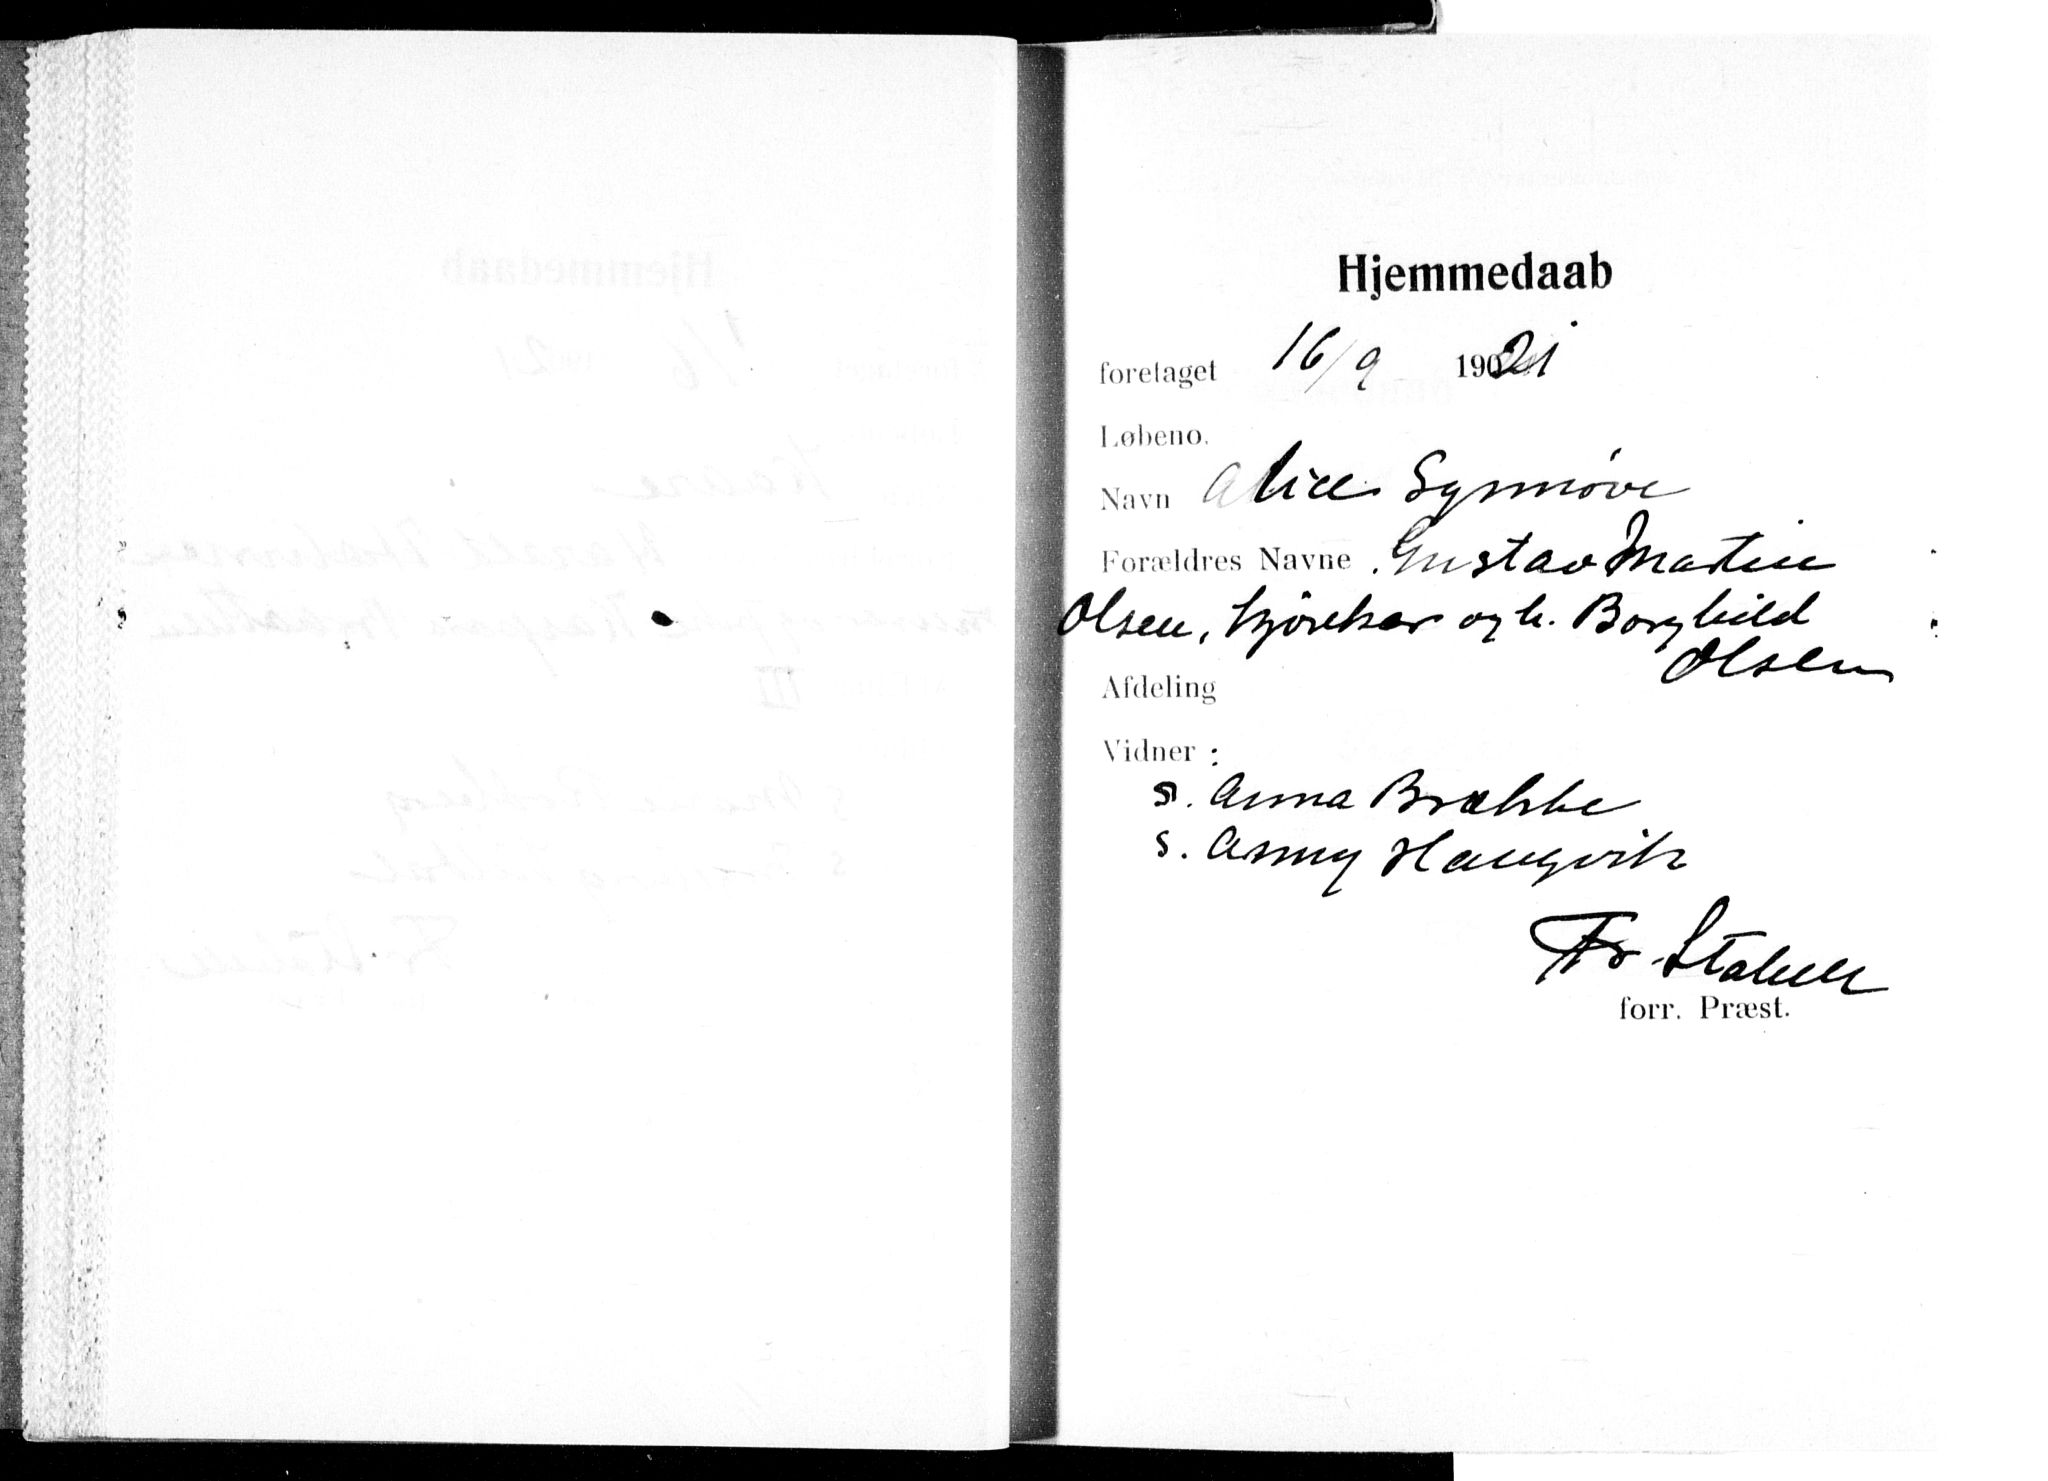 Hjemmedaab
foretaget 16/9 1921
Løbeno.
Navn Alice Synnøve
Forældres Navne Gustav Martin
Olsen, kjørekar og h. Borghild
Olsen
Afdeling
Vidner :
s. Anna Brække
s. Anny Haugvik
Fr. Stabell
forr. Præst.